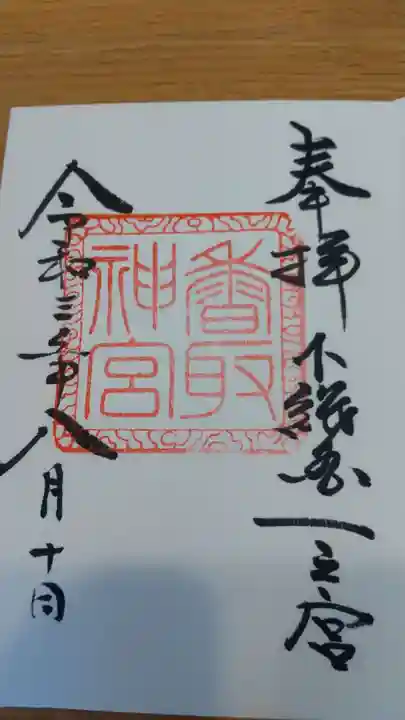 奉拝 下総國一之宮
香取
神宮
令和三年八月十日